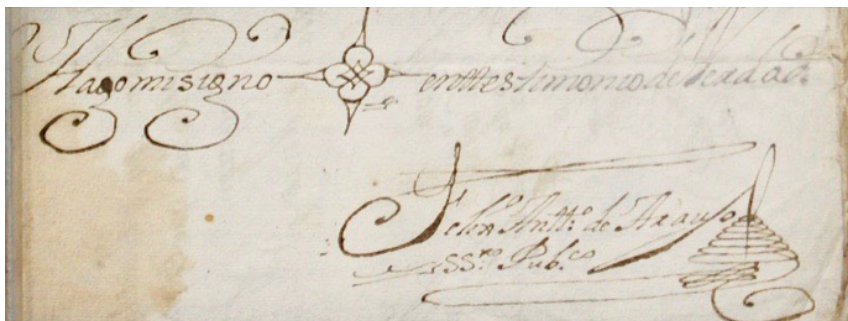 Hago mi signo en ttestimonio de Verdad.
Antt.º de Araujo
SS.no Pub.co